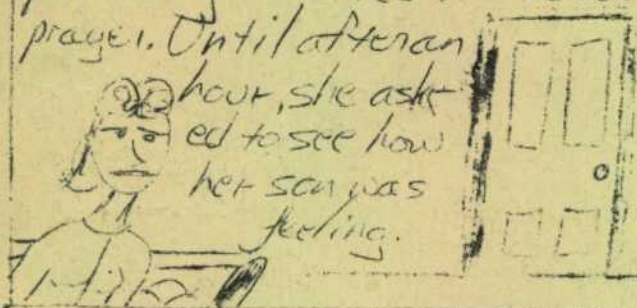 prayer. Until after an
hour, she ask-
ed to see how
her son was
feeling.